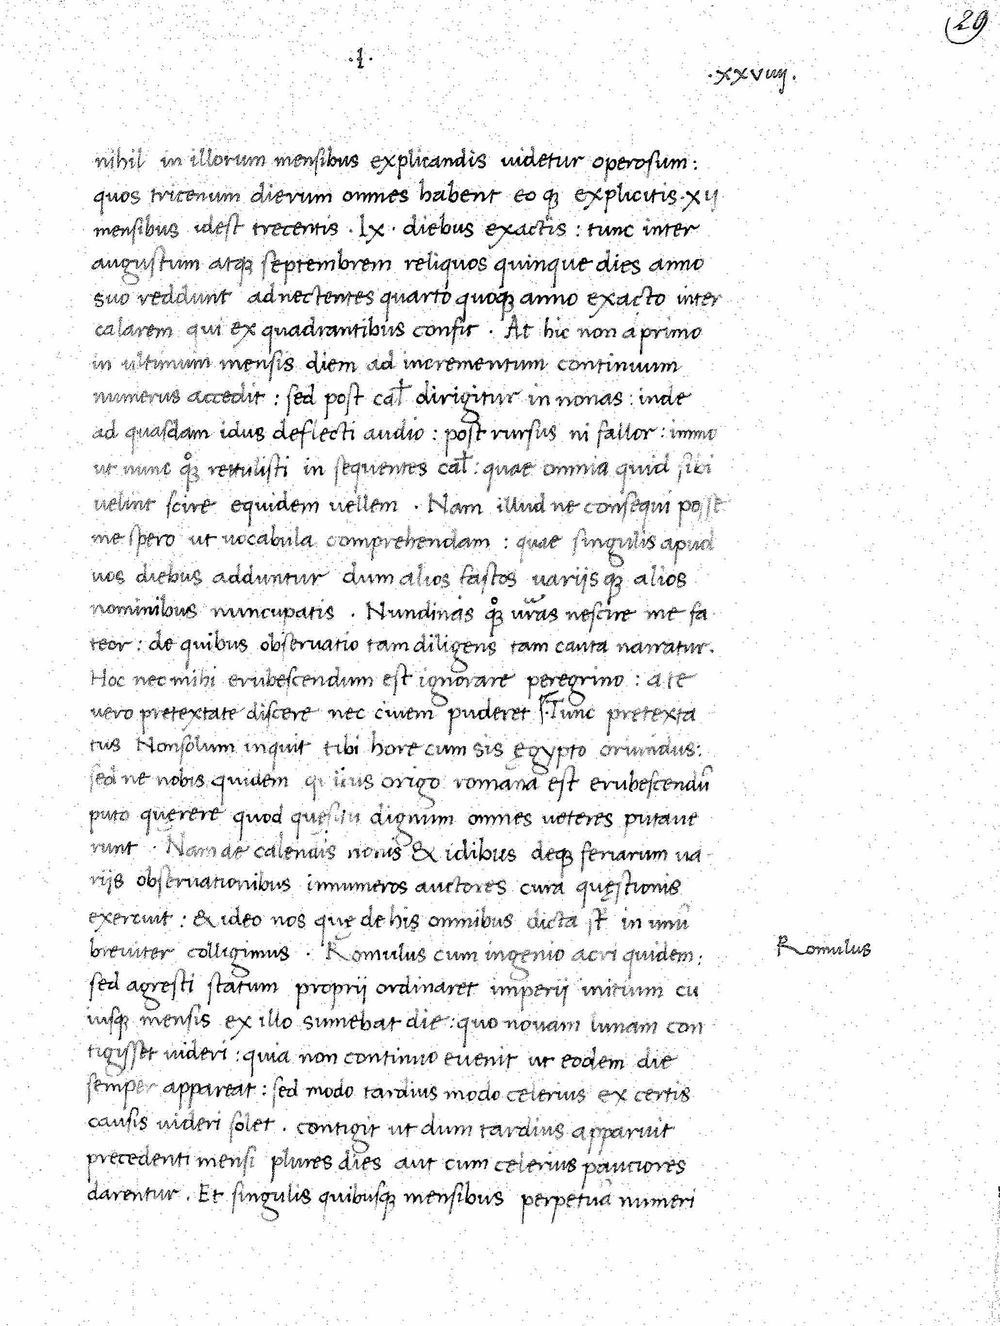 29
·I·
·xxviiij·
nihil in illorum mensibus explicandis uidetur operosum:
quos tricenum dierum omnes habent eo q; explicitis·xij
mensibus idest trecentis · lx · diebus exactis : tunc inter
augustum atq; septembrem reliquos quinque dies anno
suo reddunt adnectentes quarto quoq; anno exacto inter
calarem qui ex quadrantibus confit · At hic non a primo
in ultimum mensis diem ad incrementum continuum
numerus accedit : sed post cał dirigitur in nonas : inde
ad quasdam idus deflecti audio : post rursus ni fallor : immo
ut nunc qͦ; rettulisti in sequentes cał : quae omnia quid sibi
uelint scire equidem uellem · Nam illud ne consequi posse
me spero ut uocabula comprehendam : quae singulis apud
uos diebus adduntur dum alios fastos uariis q; alios
nominibus nuncupatis · Nundinas qͦ; ur̃as nescire me fa
teor : de quibus obseruatio tam diligens tam cauta narratur.
Hoc nec mihi erubescendum est ignorare peregrino : a te
uero pretextate discere nec ciuem puderet · Tunc pretexta
tus Nonsolum inquit tibi hore cum sis ęgypto oriundus:
sed ne nobis quidem quibus origo romana est erubescendũ
puto querere quod quęsitu dignum omnes ueteres putaue
runt · Nam de calendis nonis & idibus deq; feriarum ua
riis obseruationibus innumeros auctores cura quęstionis
exercuit : & ideo nos quę de his omnibus dicta st̃ in unũ
breuiter colligimus · Romulus cum ingenio acri quidem:
Romulus
sed agresti statum proprij ordinaret imperij initium cu
iusq; mensis ex illo sumebat die : quo nouam lunam con
tigisset uideri : quia non continuo euenit ut eodem die
semper appareat : sed modo tardius modo celerius ex certis
causis uideri solet · contigit ut dum tardius apparuit
precedenti mensi plures dies aut cum celerius pauciores
darentur . Et singulis quibusq; mensibus perpetuã numeri